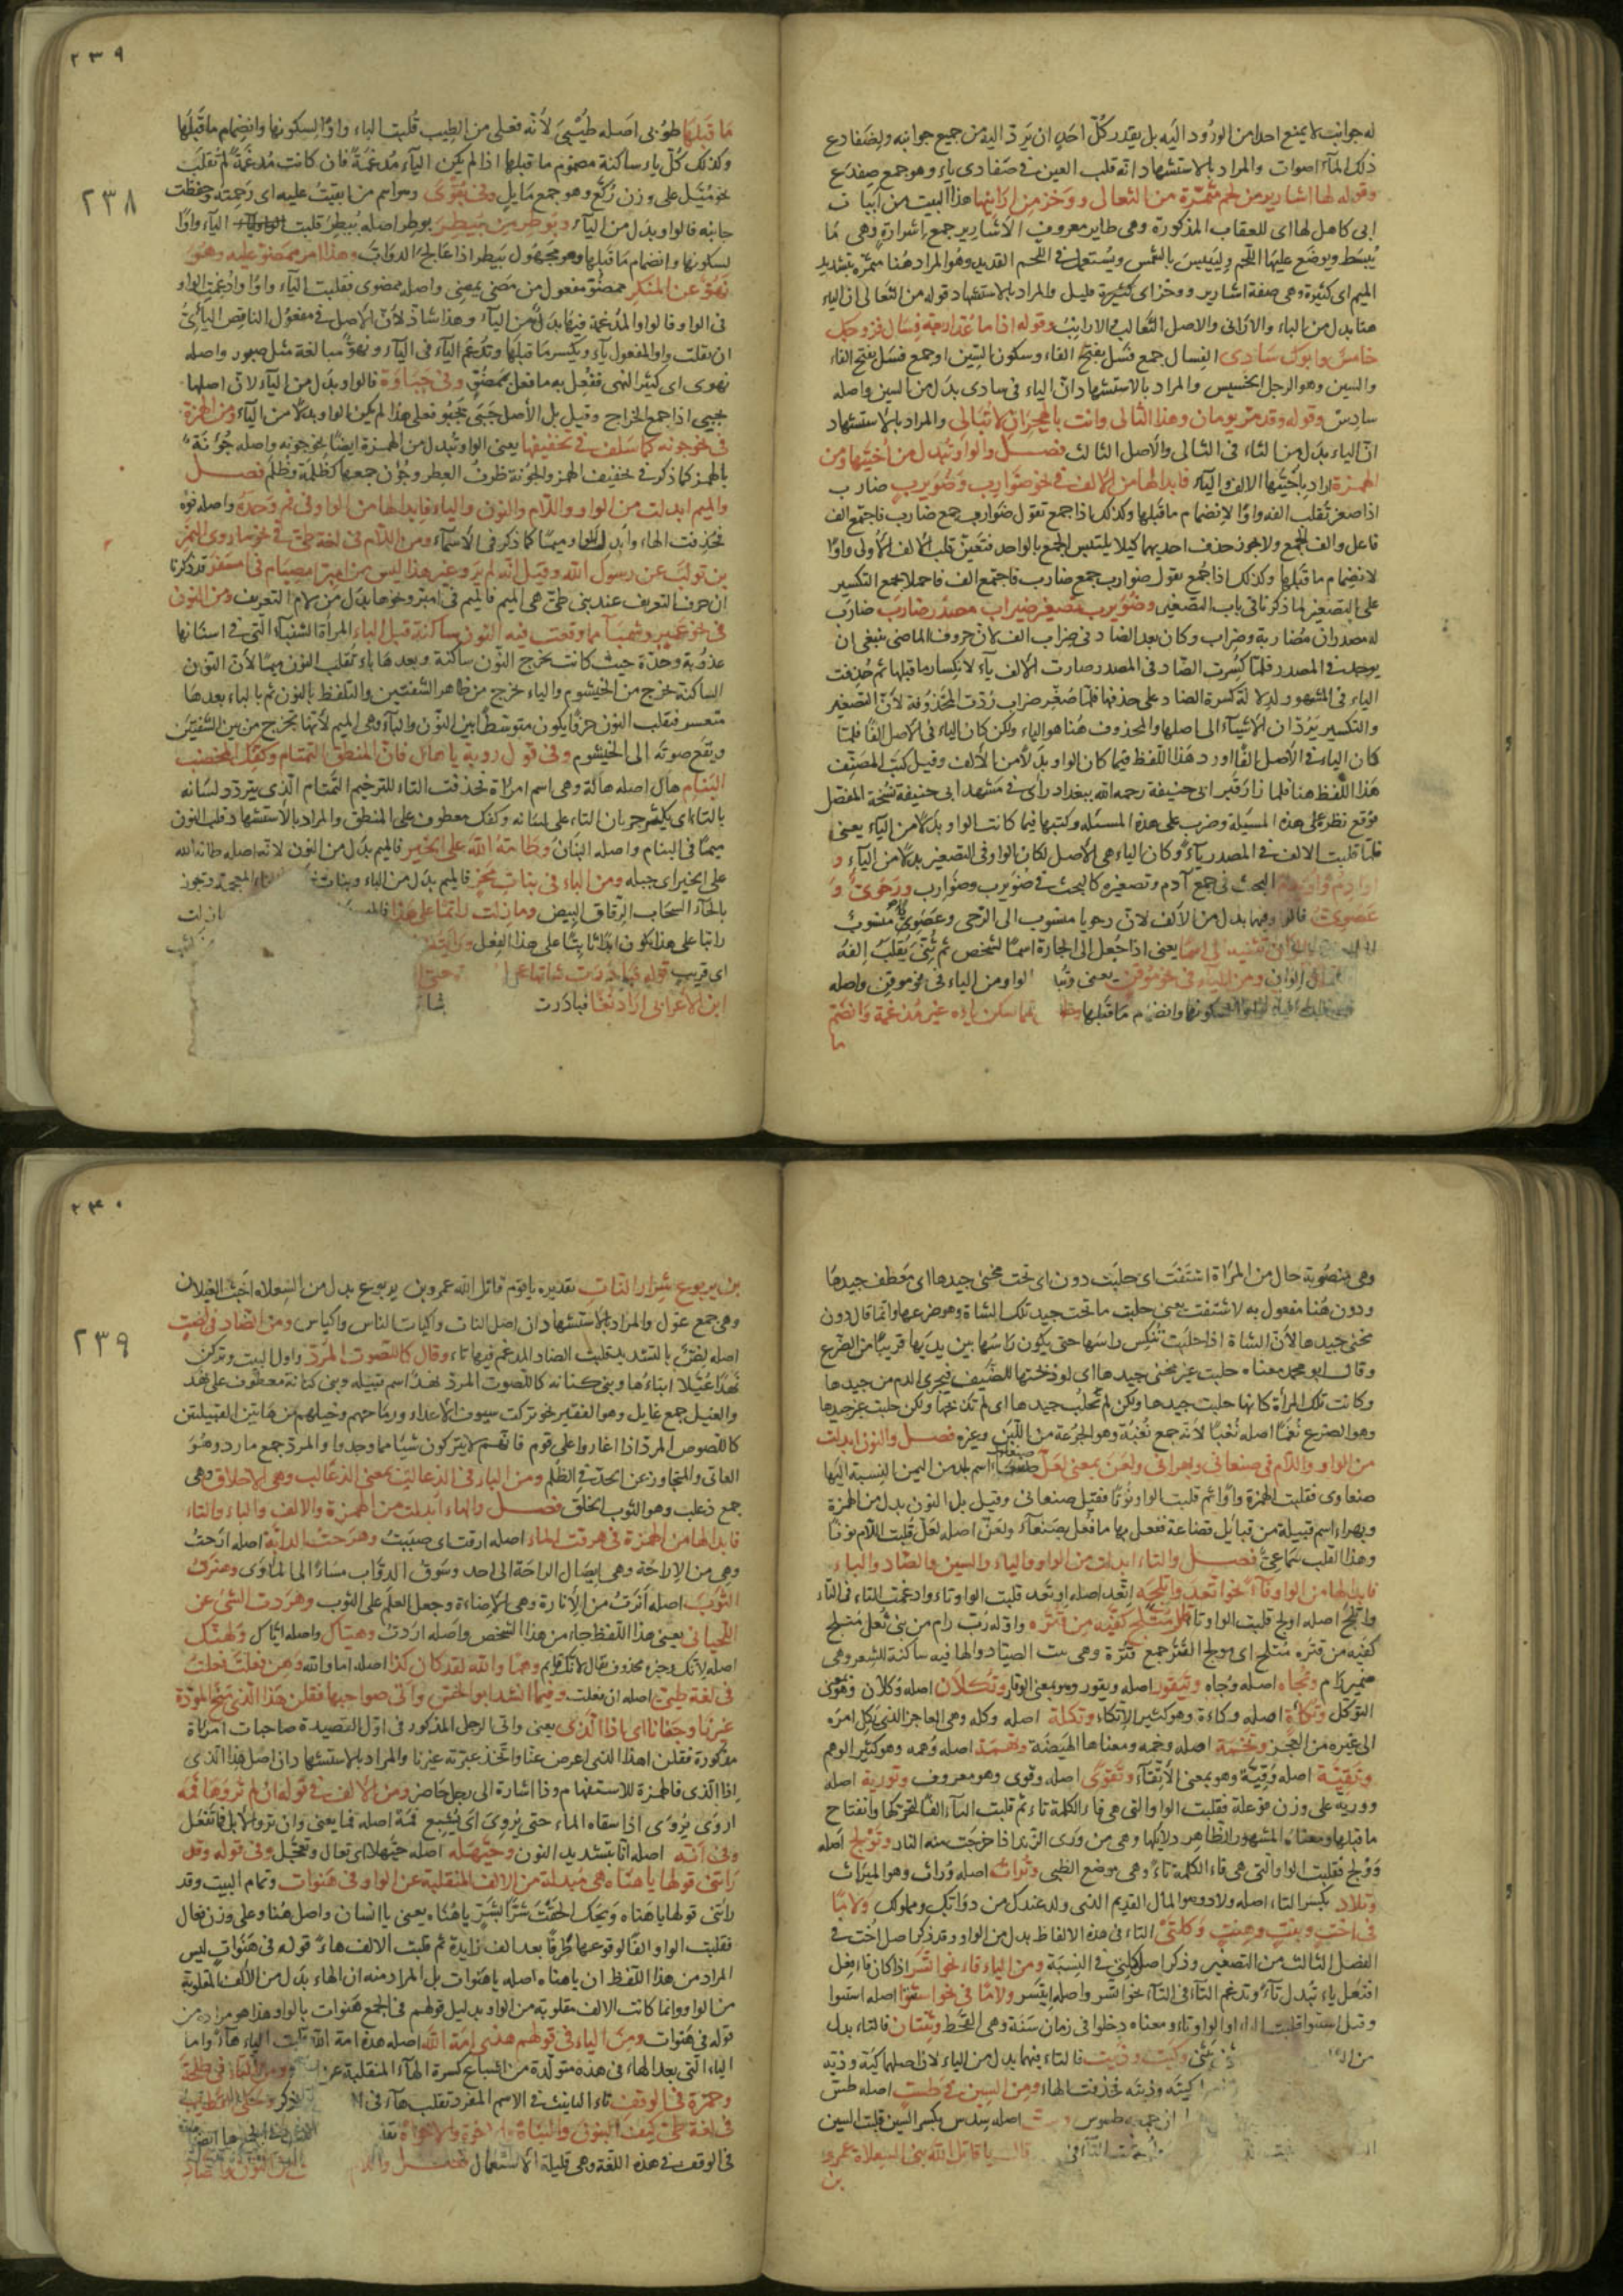 له جوانب لا يمنع احدا من الورود اليه بل يقدر كل احد ان يرد اليه من جميع جوانبه ولضفادع
ذلك الماء اصوات والمراد بالاستشهاد انه قلب العين في ضفادى ياء وهو جمع ضفدع
وقوله لها اشارير من لحم متمرة من الثعالى ووخز من ارانيها هذا البيت من ابيات
ابى كاهل لها اى للعقاب المذكورة وهى طاير معروف الاشارير جمع اشرارة وهى ما
يبسط ويوضع عليها اللحم ولييبس بالشمس ويستعمل في اللحم القديد وهو المراد هنا متمرة بتشديد
الميم اى كثيرة وهى صفة اشارير ووخز اى كثيرة قليل والمراد بالاستشهاد قوله من الثعالى ان الياء
هنا بدل من الباء والارانى والاصل الثعالب والارانب وقوله اذا ما عد اربعة فسال فزوجك
خامس وابوك سادى الفسال جمع فسل بفتح الفاء وسكون السين او جمع فسل بفتح الفاء
والسين وهو الرجل الخسيس والمراد بالاستشهاد ان الياء في سادى بدل من السين واصله
سادس وقوله وقد مر يومان وهذا الثالى وانت بالهجران لا تبالى والمراد بالاستشهاد
ان الياء بدل من الثاء في الثالى والاصل الثالث فصل والواو تبدل من اختيها ومن
الهمزة اراد باختيها الالف والياء فابدالها من الالف في نحو ضوارب وضويرب ضارب
اذا صغر تقلب الفه واوا لانضمام ما قبلها وكذلك اذا جمع تقول ضوارب جمع ضارب فاجتمع الف
فاعل والف الجمع ولا يجوز حذف احديهما كيلا يلتبس الجمع بالواحد فتعين قلب الالف الاولى واوا
لانضمام ما قبلها وكذلك اذا جمع تقول ضوارب جمع ضارب فاجتمع الف فاحملا لجمع التكسير
على التصغير لما ذكرنا في باب التصغير وضويرب تصغير ضيراب مصدر ضارب ضارب
له مصدران مضاربة وضراب وكان بعد الضاد في ضراب الف لان حروف الماضى ينبغى ان
يوجد في المصدر فلما كسرت الضاد في المصدر صارت الالف ياء لانكسار ما قبلها ثم حذفت
الياء في المشهور لدلالة كسرة الضاد على حذفها فلما صغر ضراب ردت المحذوفة لان التصغير
والتكسير يردان الاشياء الى اصلها والمحذوف هنا هو الياء ولكن كان الياء في الاصل الفا فلما
كان الياء في الاصل الفا اورد هذا اللفظ فيما كان الواو بدلا من الالف وقيل كتب المصنف
هذا اللفظ هنا فلما زار قبر ابى حنيفة رحمه الله ببغداد راى في مشهد ابى حنيفة نسخة المفصل
فوقع نظره على هذه المسئلة وضرب على هذه المسئلة وكتبها فيما كانت الواو بدلا من الياء يعنى
فلما قلبت الالف في المصدر ياء وكان الياء هى الاصل لكان الواو في التصغير بدلا من الياء و
اوادم واويدم البحث في جمع آدم وتصغيره كالبحث في ضويرب وضوارب ورحوى و
عصوى فالواو فيها بدل من الالف لان رحويا منسوب الى الرحى وعصوى منسوب
تثنية الى اسما يعنى اذا جعل الى الجارة اسما لشخص ثم ثنى يقلب الفه
الوان ومن الياء في نحو موقن يعنى وتبدل الواو من الياء في نحو موقن واصله
لسكونها وانضمام ما قبلها مما سكن ياؤه غير مدغمة وانضم
ما
٢٣٩
٢٣٨
ما قبلها طوبى اصله طيبى لانه فعلى من الطيب قلبت الياء واوا لسكونها وانضمام ما قبلها
وكذلك كل ياء ساكنة مضموم ما قبلها اذا لم يكن الياء مدغمة فان كانت مدغمة لم تقلب
نحو ميل على وزن ركع وهو جمع مايل وفى بقوى وهو اسم من ابقيت عليه اى رحمته وحفظت
جانبه فالواو بدل من الياء وبوطر من بيطر بوطر اصله بيطر قلبت الياء واوا
لسكونها وانضمام ما قبلها وهو مجهول بيطر اذا عالج الدواب وهذا امر ممضو عليه وهو
نهو عن المنكر ممضو مفعول من مضى يمضى واصله ممضوى فقلبت الياء واوا وادغمت الواو
في الواو فالواو المدغمة فيها بدل من الياء وهذا شاذ لان الاصل في مفعول الناقص اليائى
ان يقلب واو المفعول ياء ويكسر ما قبلها وتدغم الياء في الياء ونهو مبالغة مثل صبور واصله
نهوى اى كثير النهى ففعل به ما فعل بممضو وفى جباوة فالواو بدل من الياء لان اصلها
جبى اذا جمع الخراج وقيل بل الاصل جبى يجبو فعلى هذا لم يكن الواو بدلا من الياء ومن الهمزة
في نحو جونة كما سلف في تخفيفها يعنى الواو تبدل من الهمزة ايضا نحو جونة واصله جؤنة
بالهمز كما ذكر في تخفيف الهمز والجونة ظرف العطر وجون جمعها كظلمة وظلم فصل
والميم ابدلت من الواو واللام والنون والباء فابدالها من الواو في فم وحده واصله فوه
فحذفت الهاء وابدل الواو ميما كما ذكر في الاسماء ومن اللام في لغة طى في نحو ما روى النمر
بن تولب عن رسول الله وقيل انه لم يرو غير هذا ليس من امبر امصيام في امسفر قد ذكرنا
ان حرف التعريف عند بنى طى هى الميم فالميم في امبر ونحوها بدل من لام التعريف ومن النون
في نحو عمبر وشمباء مما وقعت فيه النون ساكنة قبل الباء المراة الشنباء التى في اسنانها
عذوبة وحدة حيث كانت مخرج النون ساكنة وبعدها باء تقلب النون ميما لان النون
الساكنة تخرج من الخيشوم والباء تخرج من ظاهر الشفتين والتلفظ بالنون ثم بالباء بعدها
متعسر فيقلب النون حرفا يكون متوسطا بين النون والباء وهى الميم لانها تخرج من بين الشفتين
ويقع صوته الى الخيشوم وفى قول روبة يا هال ذات المنطق التمتام وكفك المخضب
البنام هال اصله هالة وهى اسم امراة فحذفت التاء للترخيم التمتام الذى يتردد لسانه
بالتاء اى يكثر جريان التاء على لسانه وكفك معطوف على المنطق والمراد بالاستشهاد قلب النون
ميما في البنام واصله البنان وطامه الله على الخير فالميم بدل من النون لانه اصله طانه الله
على الخير اى جبله ومن الباء في بنات مخر فالميم بدل من الباء وبنات المعجمة ويجوز
بالحاء السحاب الرقاق البيض وما زلت راتما على هذا
راتبا على هذا يكون ثابتا على هذا الفعل
اى قريب قوله فبادرت شاتها عجلى
ابن الاعرابى اراد نغبا فبادرت شا
وهى منصوبة حال من المراة استقت اى حلبت دون اى تحت محنى جيدها اى معطف جيدها
ودون هنا مفعول به لاستقت يعنى حلبت ما تحت جيد تلك الشاة وهو ضرعها وانما قال دون
محنى جيدها لان الشاة اذا حلبت تنكس راسها حتى يكون راسها بين يديها قريبا من الضرع
وقال ابو محمد معناه حلبت غير محنى جيدها اى لو ذبحتها للضيف فيجرى الدم من جيدها
وكانت تلك المراة كانها حلبت جيدها ولكن لم تحلب جيدها اى لم تذبحها ولكن حلبت غير جيدها
وهو الضرع نغما اصله نغبا لانه جمع نغبة وهو الجرعة من اللبن وغيره فصل والنون ابدلت
من الواو واللام في صنعانى وبهرانى ولعن بمعنى لعل صنعاء اسم بلد من اليمن النسبة اليها
صنعاوى فقلبت الهمزة واوا ثم قلبت الواو نونا فقيل صنعانى وقيل بل النون بدل من الهمزة
وبهراء اسم قبيلة من قبائل قضاعة ففعل بها ما فعل بصنعاء ولعن اصله لعل قلبت اللام نونا
وهذا القلب سماعى فصل والتاء ابدلت من الواو والياء والسين والصاد والباء
فابدالها من الواو فاء نحو اتعد واتلجه اتعد اصله اوتعد قلبت الواو تاء وادغمت التاء في التاء
واتلج اصله اولج قلبت الواو تاء متلج كفيه من قتره واوله رب رام من بنى ثعل متلج
كفيه من قتره متلج اى مولج القتر جمع قترة وهى بيت الصياد والهاء فيه ساكنة للشعر وهى
ضمير رام وتجاه اصله وجاه وتيقور اصله ويقور وهو بمعنى الوقار وتكلان اصله وكلان وهو بمعنى
التوكل وتكاة اصله وكاءة وهو كثير الاتكاء وتكلة اصله وكلة وهى العاجز الذى يكل امره
الى غيره من العجز وتخمة اصله وخمة ومعناها الهيضة وتهمة اصله وهمة وهو كثير الوهم
وتقية اصله وقية وهو بمعنى الاتقاء وتقوى اصله وقوى وهو معروف وتورية اصله
وورية على وزن فوعلة فقلبت الواو التى هى فاء الكلمة تاء ثم قلبت الياء الفا لتحركها وانفتاح
ما قبلها ومعناه المشهور لظاهر دلائلها وهى من ورى الزند اذا خرجت منه النار وتولج اصله
وولج فقلبت الواو التى هى فاء الكلمة تاء وهى موضع الظبى وتراث اصله وراث وهو الميراث
وتلاد بكسر التاء اصله ولاد وهو المال القديم الذى ولد عندك من دوابك ومملوك ولاما
في اخت وبنت وهنت وكلتى التاء في هذه الالفاظ بدل من الواو وقد ذكر اصل اخت في
الفصل الثالث من التصغير وذكر اصل كلتى في النسبة ومن الياء فاء نحو اتسر اذا كان فاء فعل
افتعل ياء تبدل تاء وتدغم التاء في التاء نحو اتسر واصله ايتسر ولاما في نحو اسنتوا اصله اسنوا
وقيل اسنيوا قلبت الواو تاء ومعناه دخلوا في زمان سنة وهى القحط وثنتان فالتاء بدل
من الياء وكيت وذيت فالتاء فيهما بدل من الياء لان اصلهما كية وذية
كية وذية فحذفت الهاء ومن السين في طست اصله طس
طسوس وست اصله سدس بكسر السين قلبت السين
وادغمت التاء في قال يا قاتل الله بنى السعلاة عمرو
بن
٢٤٠
٢٣٩
بن يربوع شرار النات تقديره يا قوم قاتل الله عمرو بن يربوع بدل من السعلاة اخبث الغيلان
وهى جمع غول والمراد بالاستشهاد ان اصل النات واكيات الناس واكياس ومن الصاد في لصت
اصله لص بالتشديد قلبت الصاد المدغم فيها تاء وقال كاللصوت المرد واول البيت وتركن
نهدا عيلا ابناءها وبنى كنانة كاللصوت المرد نهد اسم قبيلة وبنى كنانة معطوف على نهد
والعيل جمع عايل وهو الفقير نحو تركت سيوف الاعداء ورماحهم وخيلهم من هاتين القبيلتين
كاللصوص المرد اذا اغاروا على قوم فانهم لا يتركون شيئا مما وجدوا والمرد جمع مارد وهو
العاتى والمتجاوز عن الحد في الظلم ومن الباء في الذعالت بمعنى الذعالب وهى الاخلاق وهى
جمع ذعلب وهو الثوب الخلق فصل والهاء ابدلت من الهمزة والالف والياء والتاء
فابدالها من الهمزة في هرقت الماء اصله ارقت اى صببت وهرحت الدابة اصله ارحت
وهى من الاراحة وهى ايصال الراحة الى احد وسوق الدواب مساء الى الماوى وهنرت
الثوب اصله انرت من الانارة وهى الاضاءة وجعل العلم على الثوب وهردت الشئ عن
اللحيانى يعنى هذا اللفظ جاء من هذا الشخص واصله اردت وهياك واصله اياك ولهنك
اصله لانك وخبره محذوف يقال لانك قايم وهما والله لقد كان كذا اصله اما والله وهن فعلت فعلت
في لغة طى اصله ان فعلت وفيما انشد ابو الحسن واتى صواحبها فقلن هذا الذى منح المودة
غيرنا وجفانا اى اذا الذى يعنى واتى الرجل المذكور في اول القصيدة صاحبات امراة
مذكورة فقلن اهذا الذى اعرض عنا واتخذ غيرنا والمراد بالاستشهاد ان اصل هذا الذى
اذا الذى فالهمزة للاستفهام وذا اشارة الى رجل حاضر ومن الالف في قوله ان لم تروها فمه
اروى يروى اذا سقاه الماء حتى يروى اى يشبع فمه اصله فما يعنى وان لم ترو الابل فما تفعل
وفى انه اصله انا بتشديد النون وحيهله اصله حيهلا اى تعال وتعجل وفى قوله وقد
رابنى قولها يا هناه هى مبدلة من الالف المنقلبة عن الواو في هنوات وتمام البيت وقد
رابنى قولها يا هناه ويحك الحقت شرا بشر يا هناه يعنى يا انسان واصل هنا وعلى وزن فعال
فقلبت الواو الفا لوقوعها طرفا بعد الف زايدة ثم قلبت الالف هاء قوله في هنوات ليس
المراد من هذا اللفظ ان يا هناه اصله يا هنوات بل المراد منه ان الهاء بدل من الالف المقلوبة
من الواو وانما كانت الالف مقلوبة من الواو بدليل قولهم في الجمع هنوات بالواو وهذا هو مراده من
قوله في هنوات ومن الياء في قولهم هذى امة الله اصله هذه امة الله قلبت الياء هاء واما
الياء التى بعد الهاء في هذه متولدة من اشباع كسرة الهاء المنقلبة عن ومن التاء في طلحة
وحمزة في الوقف تاء التانيث في الاسم المفرد تقلب هاء في ذكر
في لغة طى كيف البنون والبناه وكيف الاخوة والاخواه
في الوقف في هذه اللغة وهى قليلة الاستعمال فصل واللام